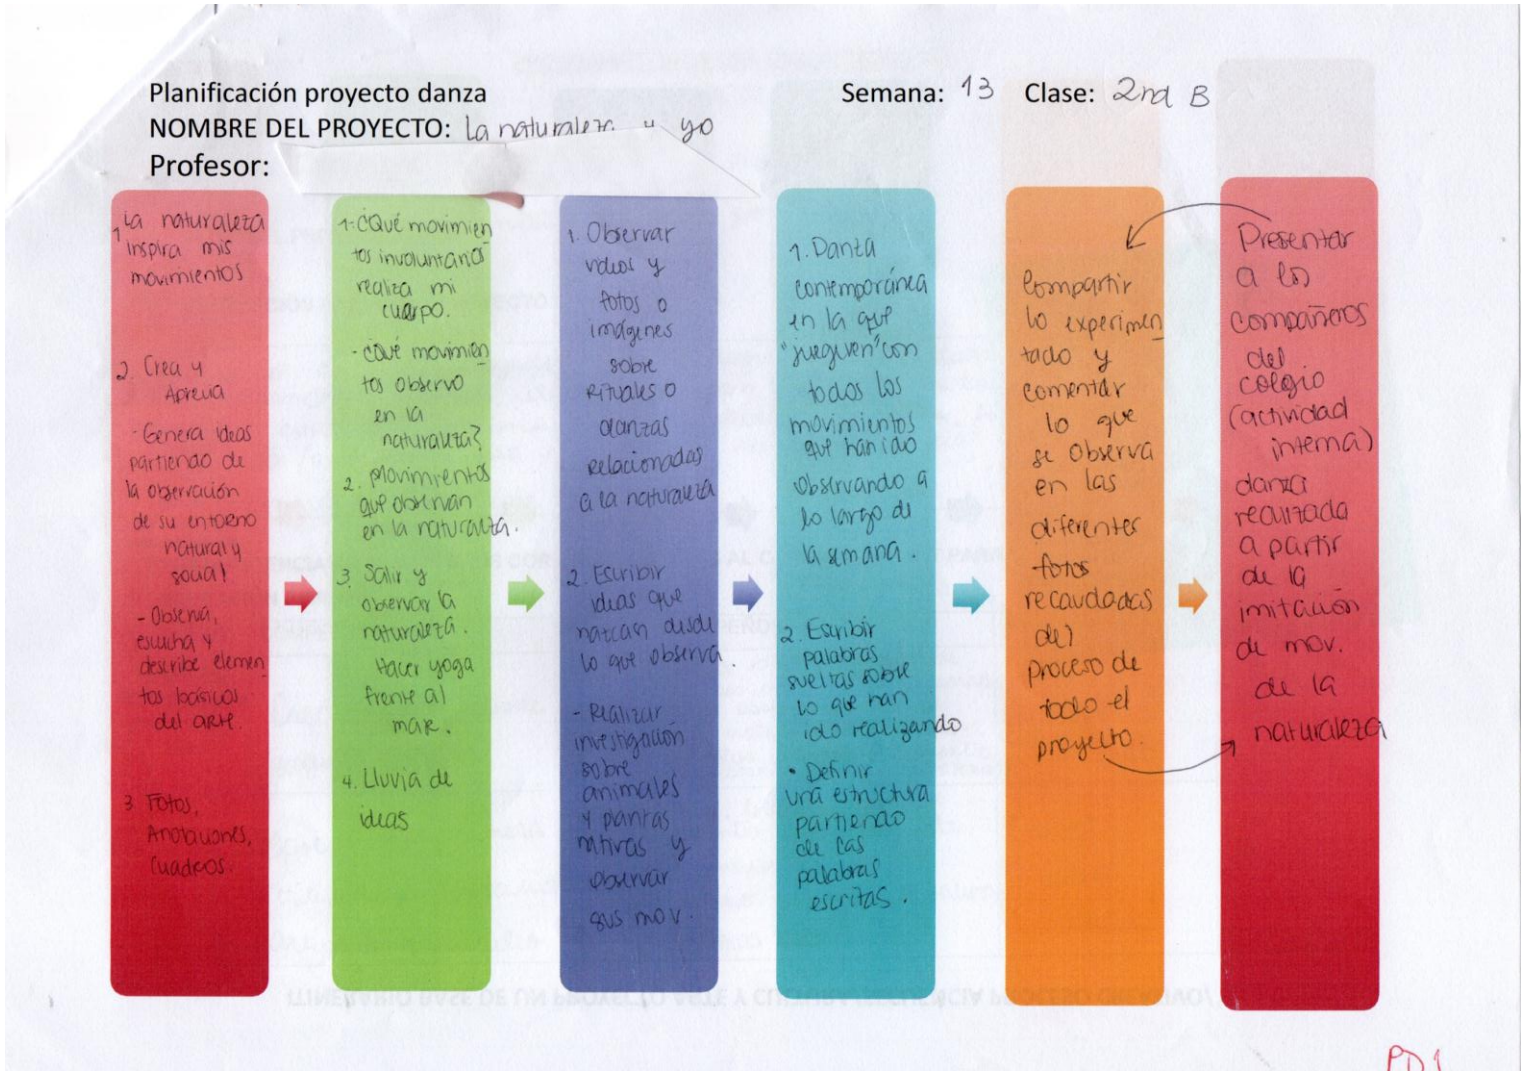 Planificación proyecto danza
Semana: 13 Clase: 2nd B
NOMBRE DEL PROYECTO: La naturaleza y yo
Profesor:
1. La naturaleza
inspira mis
movimientos
2. Crea y
Aprecia
- Genera ideas
partiendo de
la observación
de su entorno
natural y
social
- Observa,
escucha y
describe elemen
tos básicos
del arte.
3. Fotos,
Anotaciones,
Cuadros.
1- ¿Qué movimien
tos involuntarios
realiza mi
cuerpo.
- ¿Qué movimien
tos observo
en la
naturaleza?
2. Movimientos
que observan
en la naturaleza.
3. Salir y
observar la
naturaleza.
Hacer yoga
frente al
mar.
4. Lluvia de
ideas
1. Observar
videos y
fotos o
imágenes
sobre
Rituales o
danzas
relacionadas
a la naturaleza
2. Escribir
ideas que
nazcan desde
lo que observa.
- Realizar
investigación
sobre
animales
y plantas
nativas y
observar
sus mov.
1. Danza
contemporánea
en la que
"jueguen" con
todos los
movimientos
que han ido
observando a
lo largo de
la semana.
2. Escribir
palabras
sueltas sobre
lo que han
ido realizando
• Definir
una estructura
partiendo
de las
palabras
escritas.
Compartir
lo experimen
tado y
comentar
lo que
se observa
en las
diferentes
fotos
recaudadas
del
proceso de
todo el
proyecto.
Presentar
a los
compañeros
del
colegio
(actividad
interna)
danza
realizada
a partir
de la
imitación
de mov.
de la
naturaleza
PD1